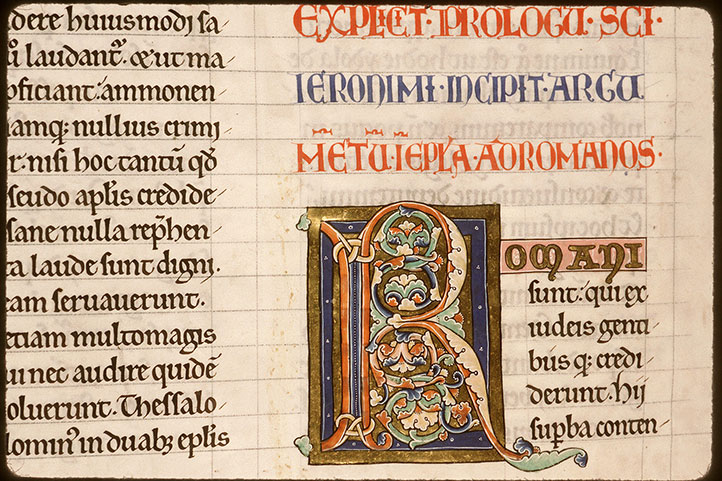 dere huiusmodi sa/
ū laudant᷑. & ut ma/
ꝑficiant: ammonen
iamq; nullius crimi
r: nisi hoc tantū qđ
seudo apl̄is credide/
sane nulla rep̄hen/
ta laude sunt digni.
eam seruauerunt.
etiam multomagis
ui nec audire quidē
oluerunt. Thessalo/
lomin' in duabꝫ ep̄lis
EXPLICT·PROLOGU·SCI·
IERONIMI·INCIPIT·ARGU
M̄ETŪ·ĪEPL̄A·ADROMANOS·
ROMANI
sunt: qui ex
iudeis genti/
bus q; credi/
derunt. Hij
suꝑba conten/